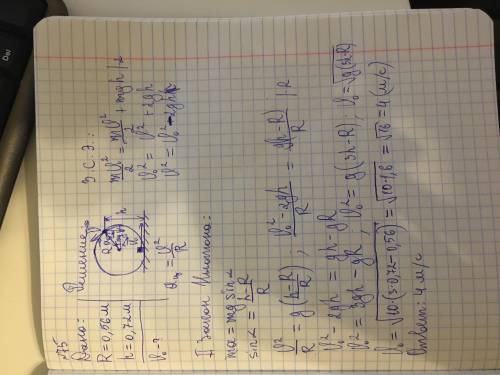 №75
Дано:
R = 0,56 м
h = 0,72 м
V₀ - ?
Решение:
R
h
aц = V²/R
З С.Э.:
mV₀²/2 = mV²/2 + mgh |·2
V₀² = V² + 2gh
V² = V₀² - 2gh
II Закон Ньютона:
ma = mg sin α
sin α = (h-R)/R
V²/R = g(h-R)/R ; (V₀² - 2gh)/R = g(h-R)/R | R
V₀² - 2gh = gh - gR
V₀² = 3gh - gR, V₀² = g(3h - R), V₀ = √g(3h-R)
V₀ = √10·(3·0,72-0,56) = √10·1,6 = √16 = 4 (м/с)
Ответ: 4 м/с